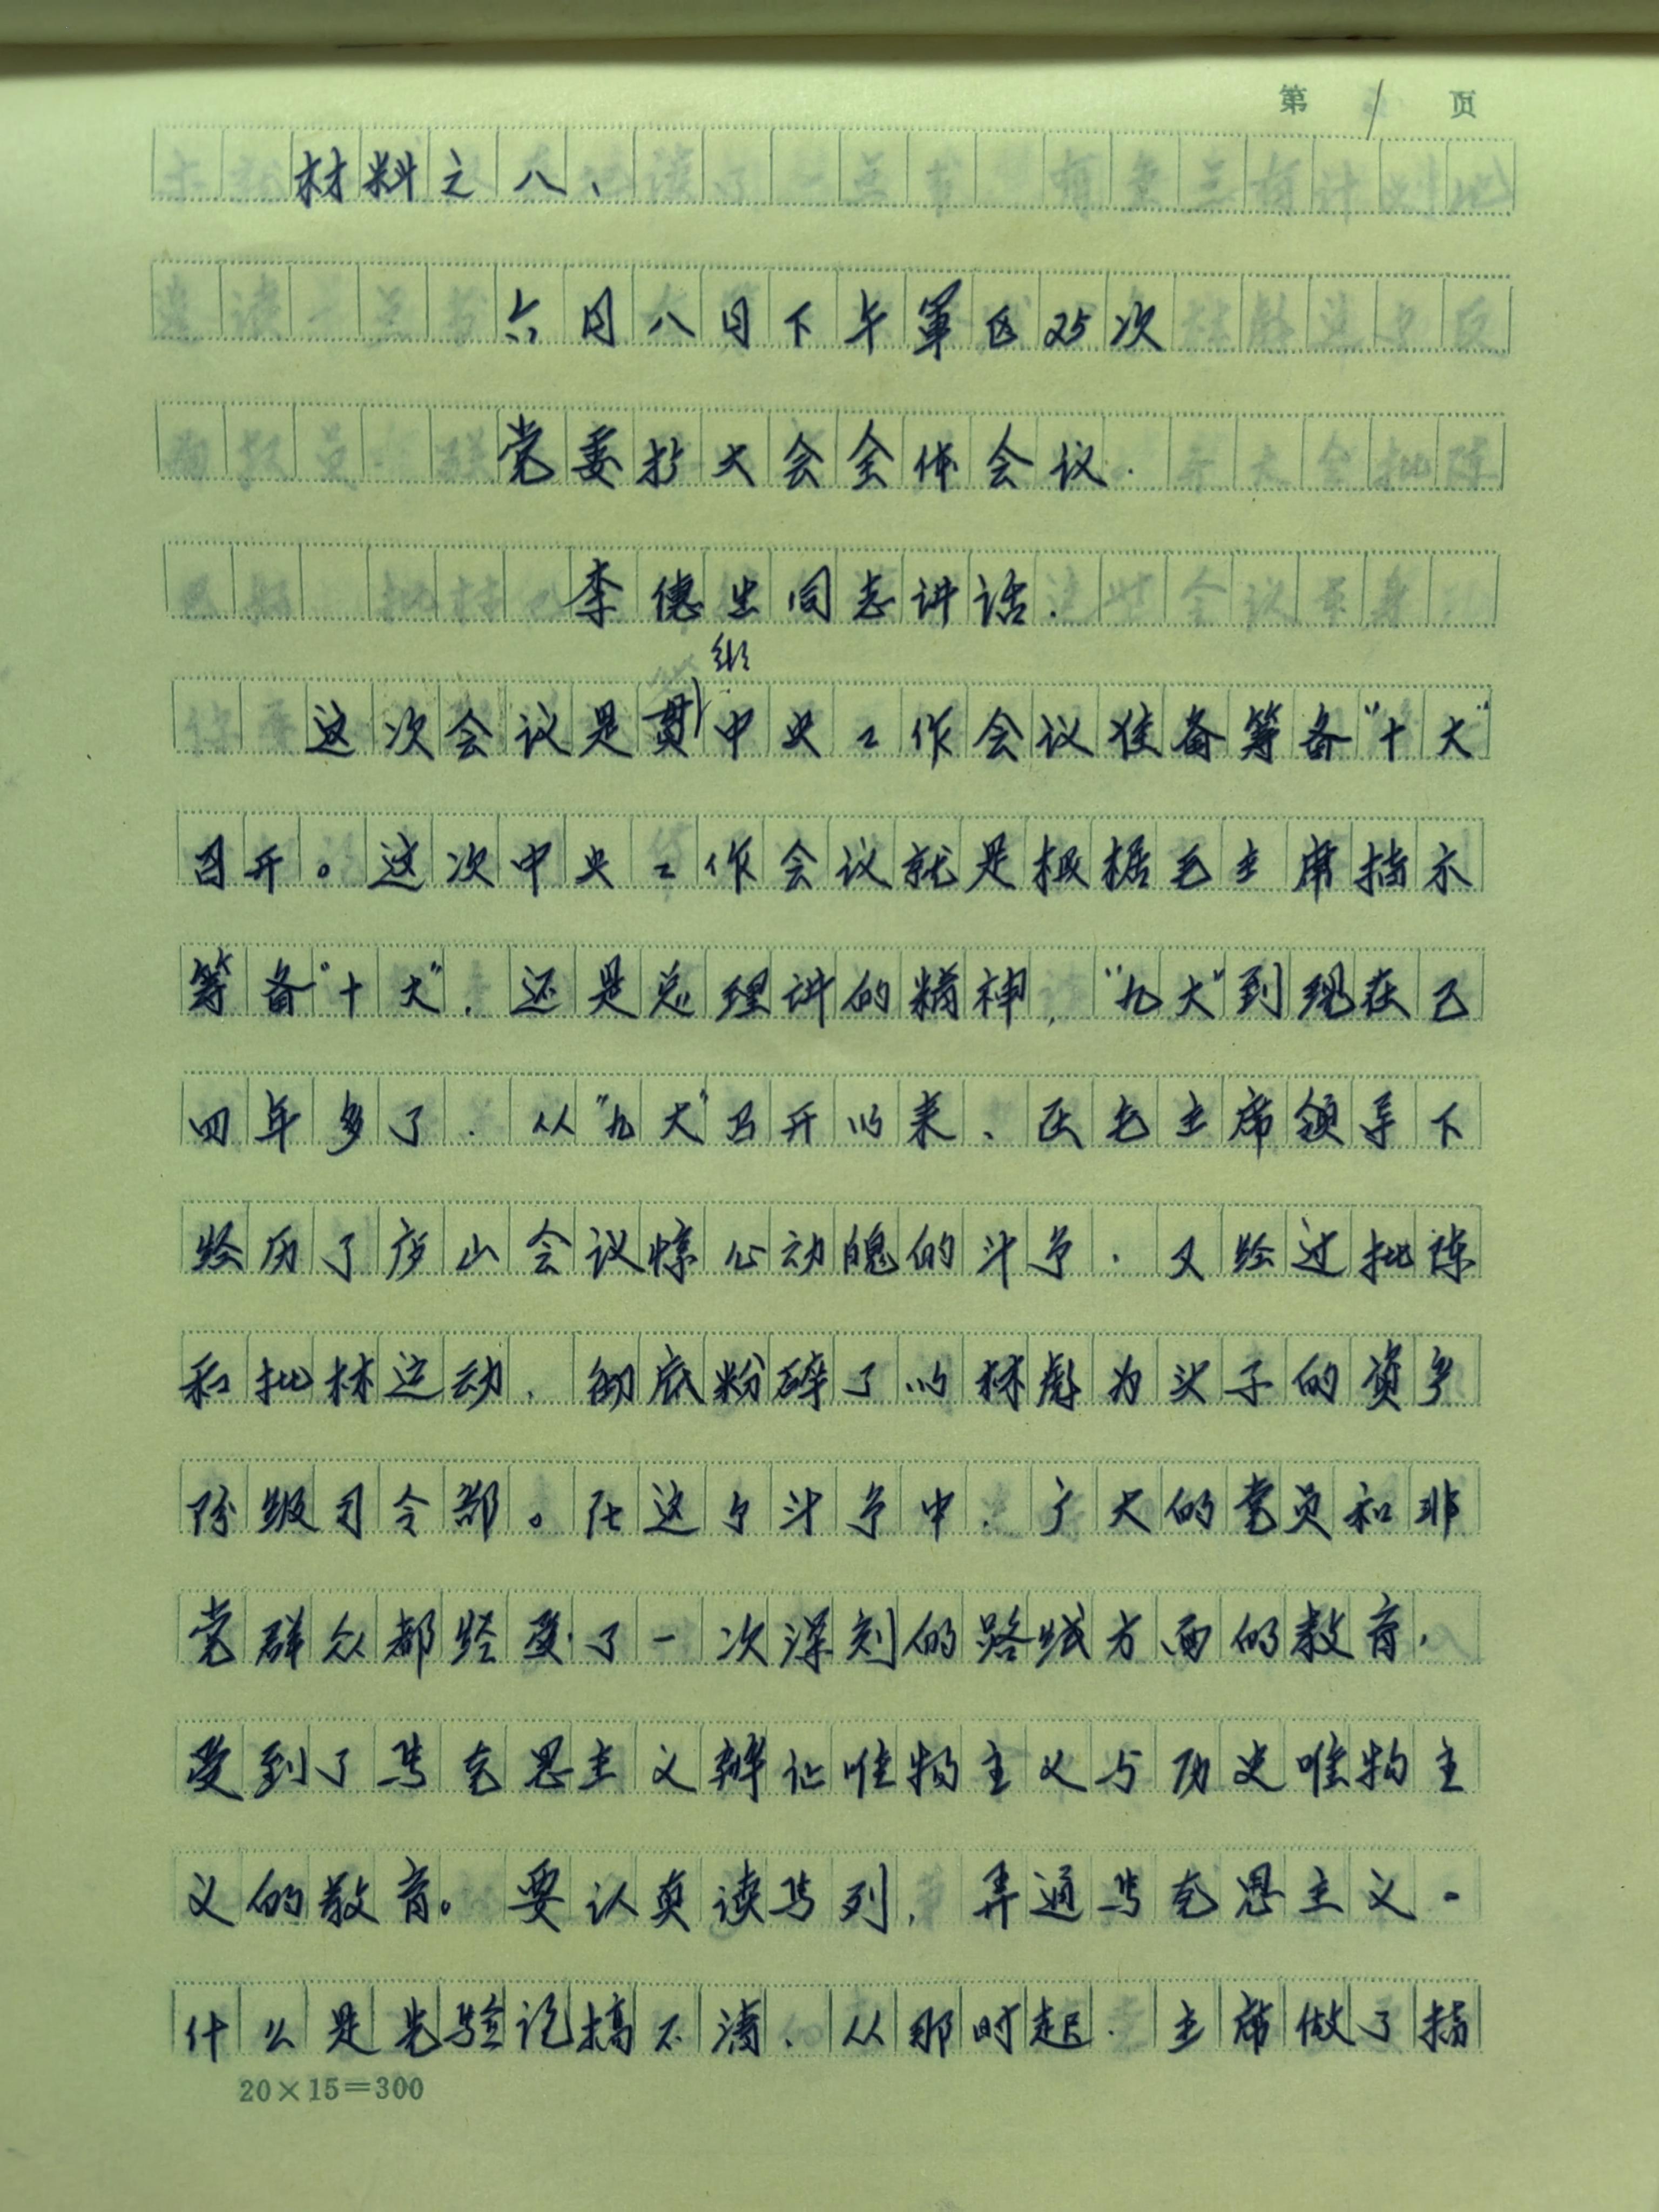 第 1 页
材料之八、
六月八日下午軍区25次
党委扩大会全体会议.
李德生同志讲话.
这次会议是贯彻中央工作会议准备筹备“十大”
召开。这次中央工作会议就是根据毛主席指示
筹备“十大”. 还是总理讲的精神, “九大”到现在已
四年多了. 从“九大”召开以来、在毛主席领导下
经历了庐山会议惊心动魄的斗争. 又经过批陈
和批林运动、彻底粉碎了以林彪为头子的资产
阶级司令部。在这个斗争中. 广大的党员和非
党群众都经受了一次深刻的路线方面的教育,
受到了马克思主义辩证唯物主义与历史唯物主
义的教育。要认真读马列, 弄通马克思主义.
什么是先验论搞不清、从那时起. 主席做了指
20×15=300